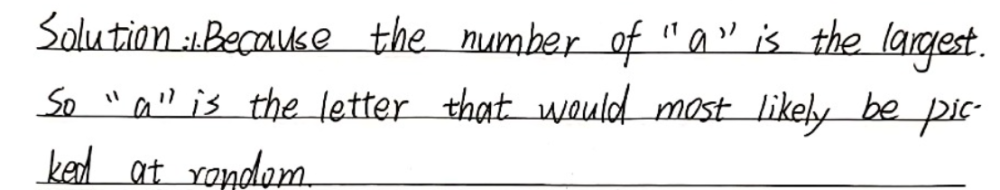 Solution:1.Because the number of "a" is the largest.
So "a" is the letter that would most likely be pic-
ked at random.